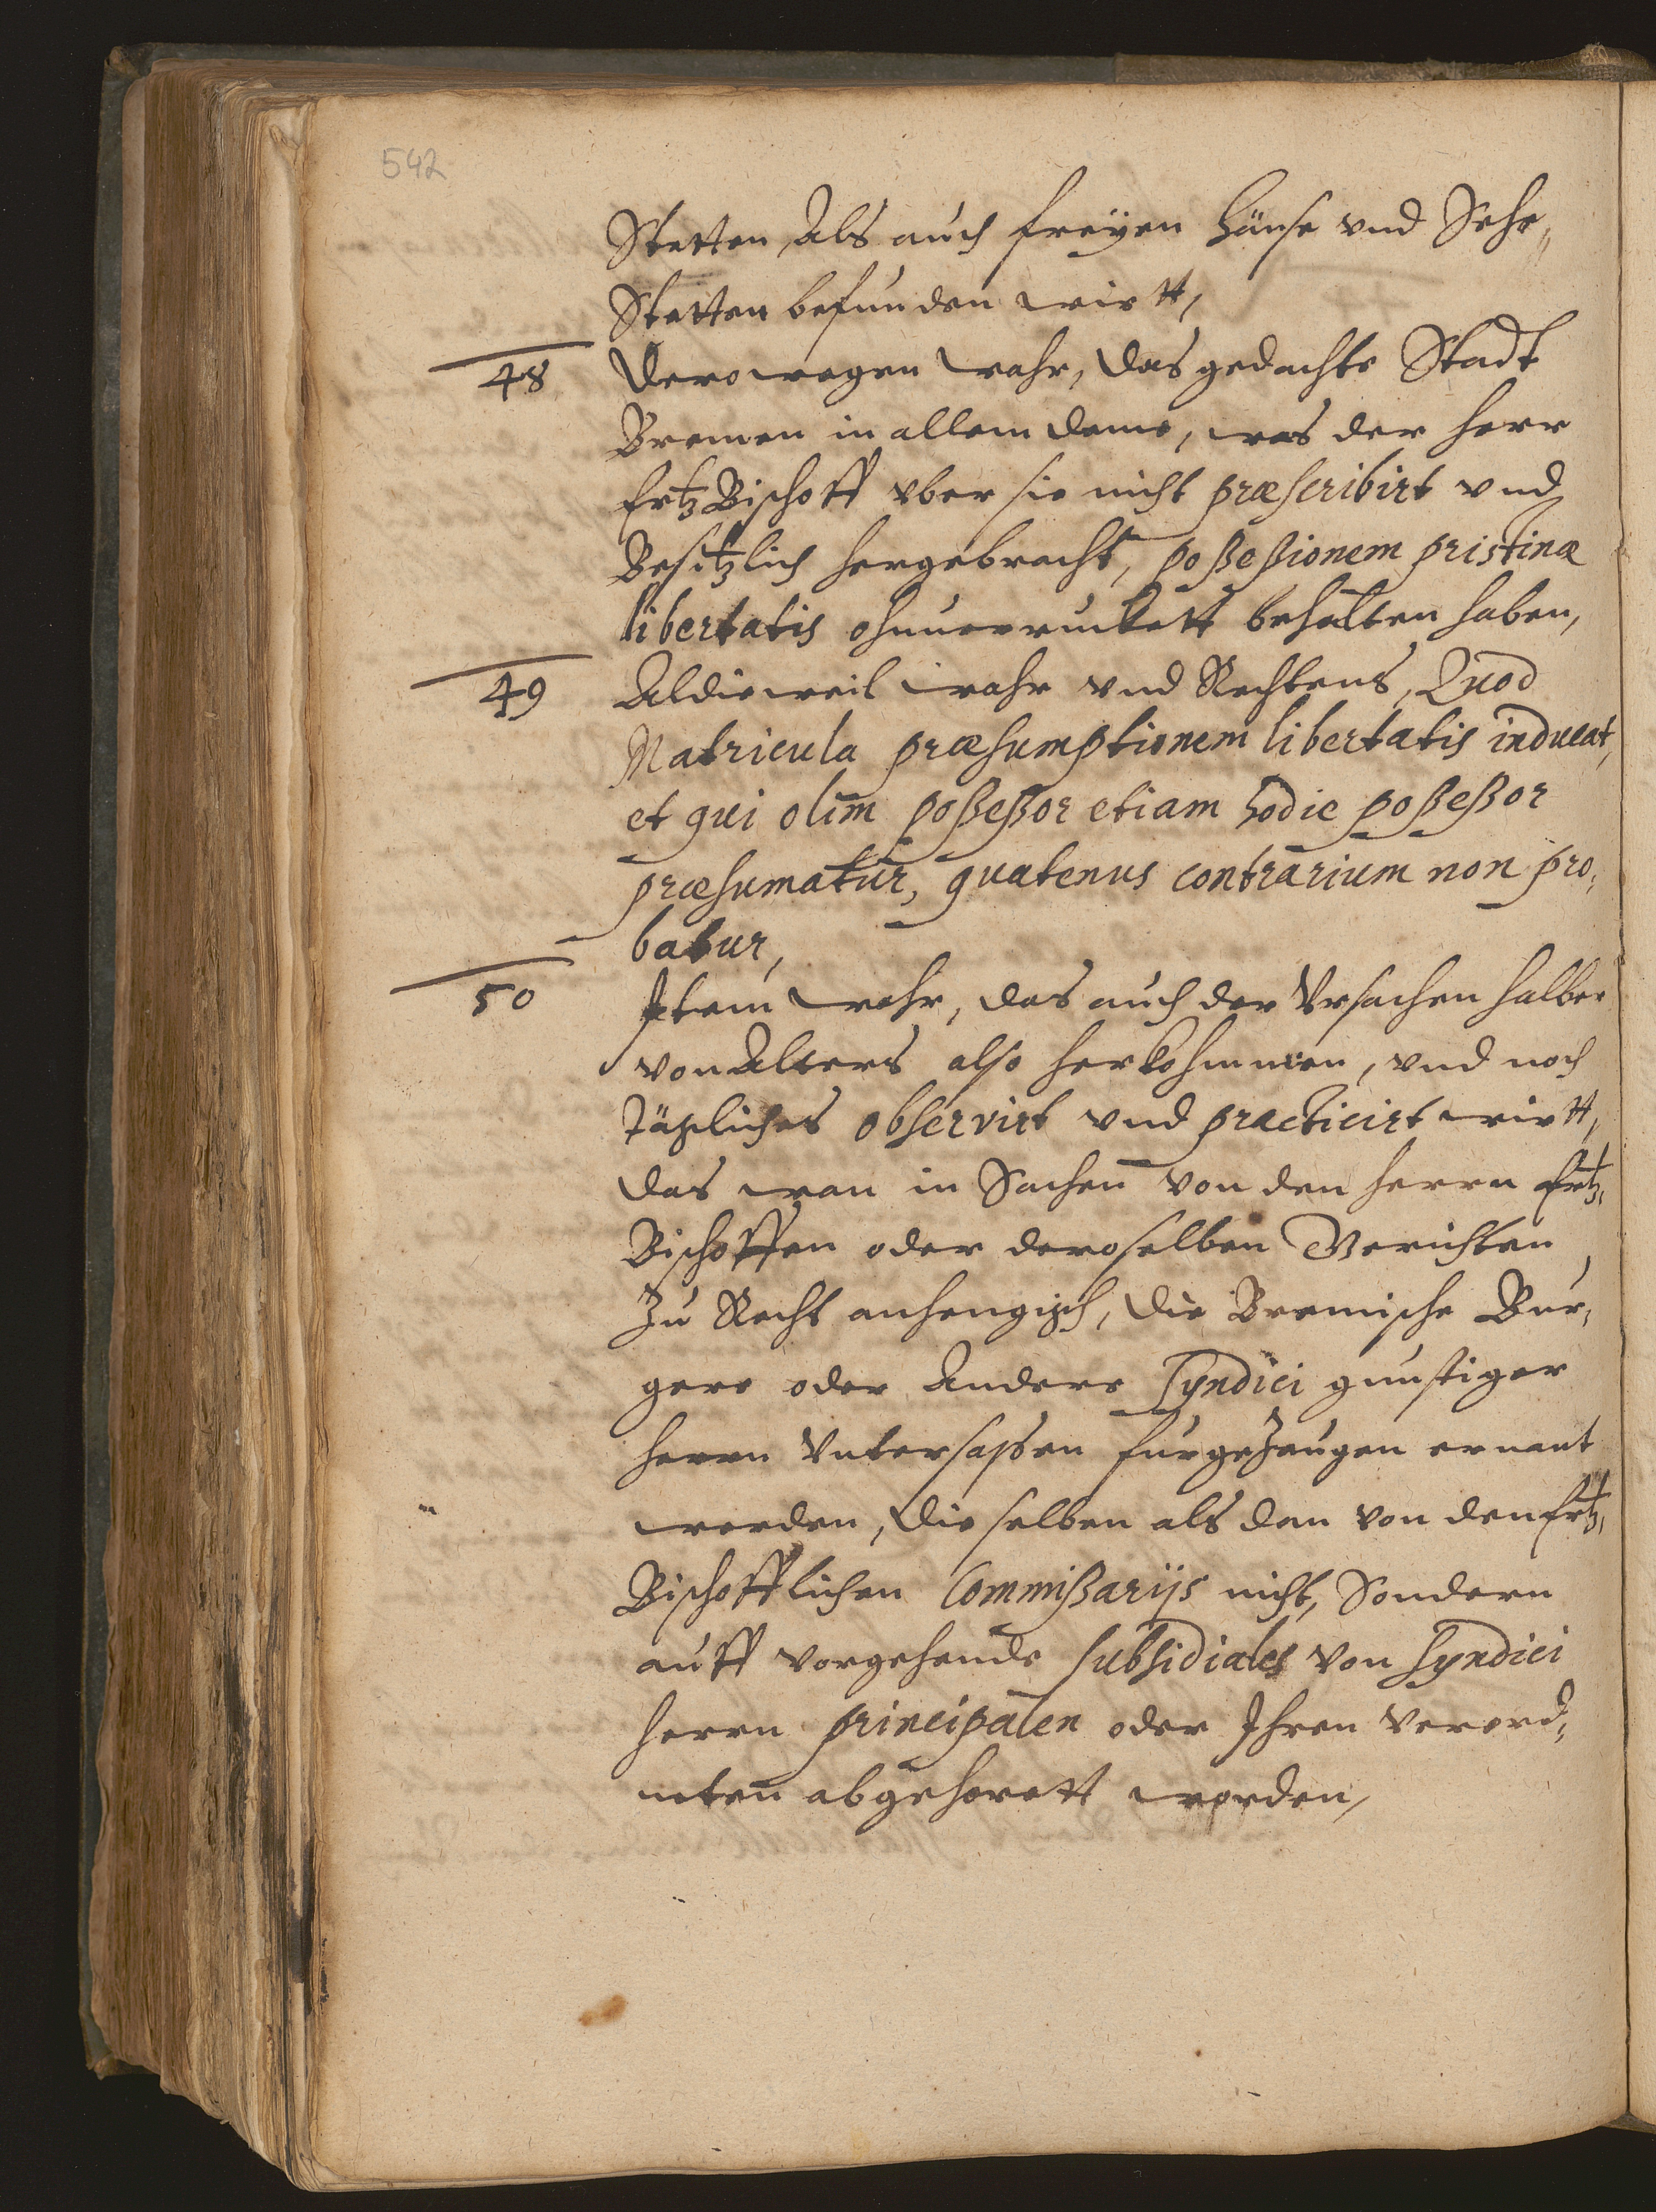 542
Stetten, Als auch freÿen Hänse vnd Sehe„
Stetten befunden wirtt,
48 Derowegen wahr, das gedachte Stadt
Bremen in allem deme, was der Herr
ErtzBischoff vber sie nicht præscribirt vnd
Besitzlich hergebracht, poßeßionem pristinæ
libertatis ohnuerruckett behalten haben,
49 Aldieweil wahr vnd Rechtens, Quod
Matricula præsumptionem libertatis inducat,
et qui olim poßeßor etiam hodie poßeßor
præsumatur, quatenus contrarium non pro„
batur,
50 Item wahr, das auch der Vrsachen halber
von Alters also herkohmmen, vnd noch
tägliches observirt vnd practicirt wirtt,
das wan in Sachen von den Herrn Ertz„
Bischoffen oder deroselben Gerichten
Zu Recht anhengisch, die Bremische Bur„
gere oder Andere Syndici gunstiger
Herrn Vntersaßen fur gezeugen ernant
worden, die selben als dan von den Ertz„
Bischofflichen Commißarijs nicht, Sondern
auff vorgehende subsidiales von Syndici
Herrn principalen oder Ihren Verord„
neten abgehorett worden,